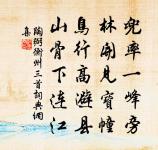 兜率一峰旁
林開見寶幢
鳥行高避縣
山骨下連江
陶弼衡州三首詞典網
集